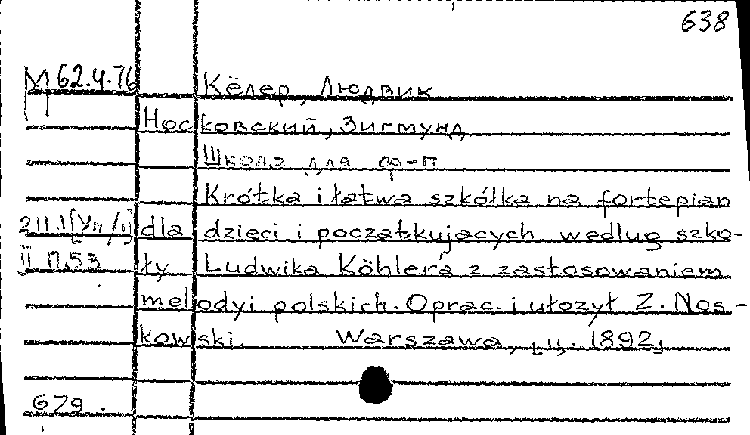 638
М 62.4.76 Кёлер, Людвик
Носковский, Зигмунд
Школа для ф-п
Krótka i łatwa szkółka na fortepian
dla dzięci i początkujacych według szko-
II П.53 ły Ludwika Köhlera z zastosowaniem
melodyi polskich. Oprac. i ułozył Z. Nos-
kowski. Warszawa, [ц. 1892]
679.